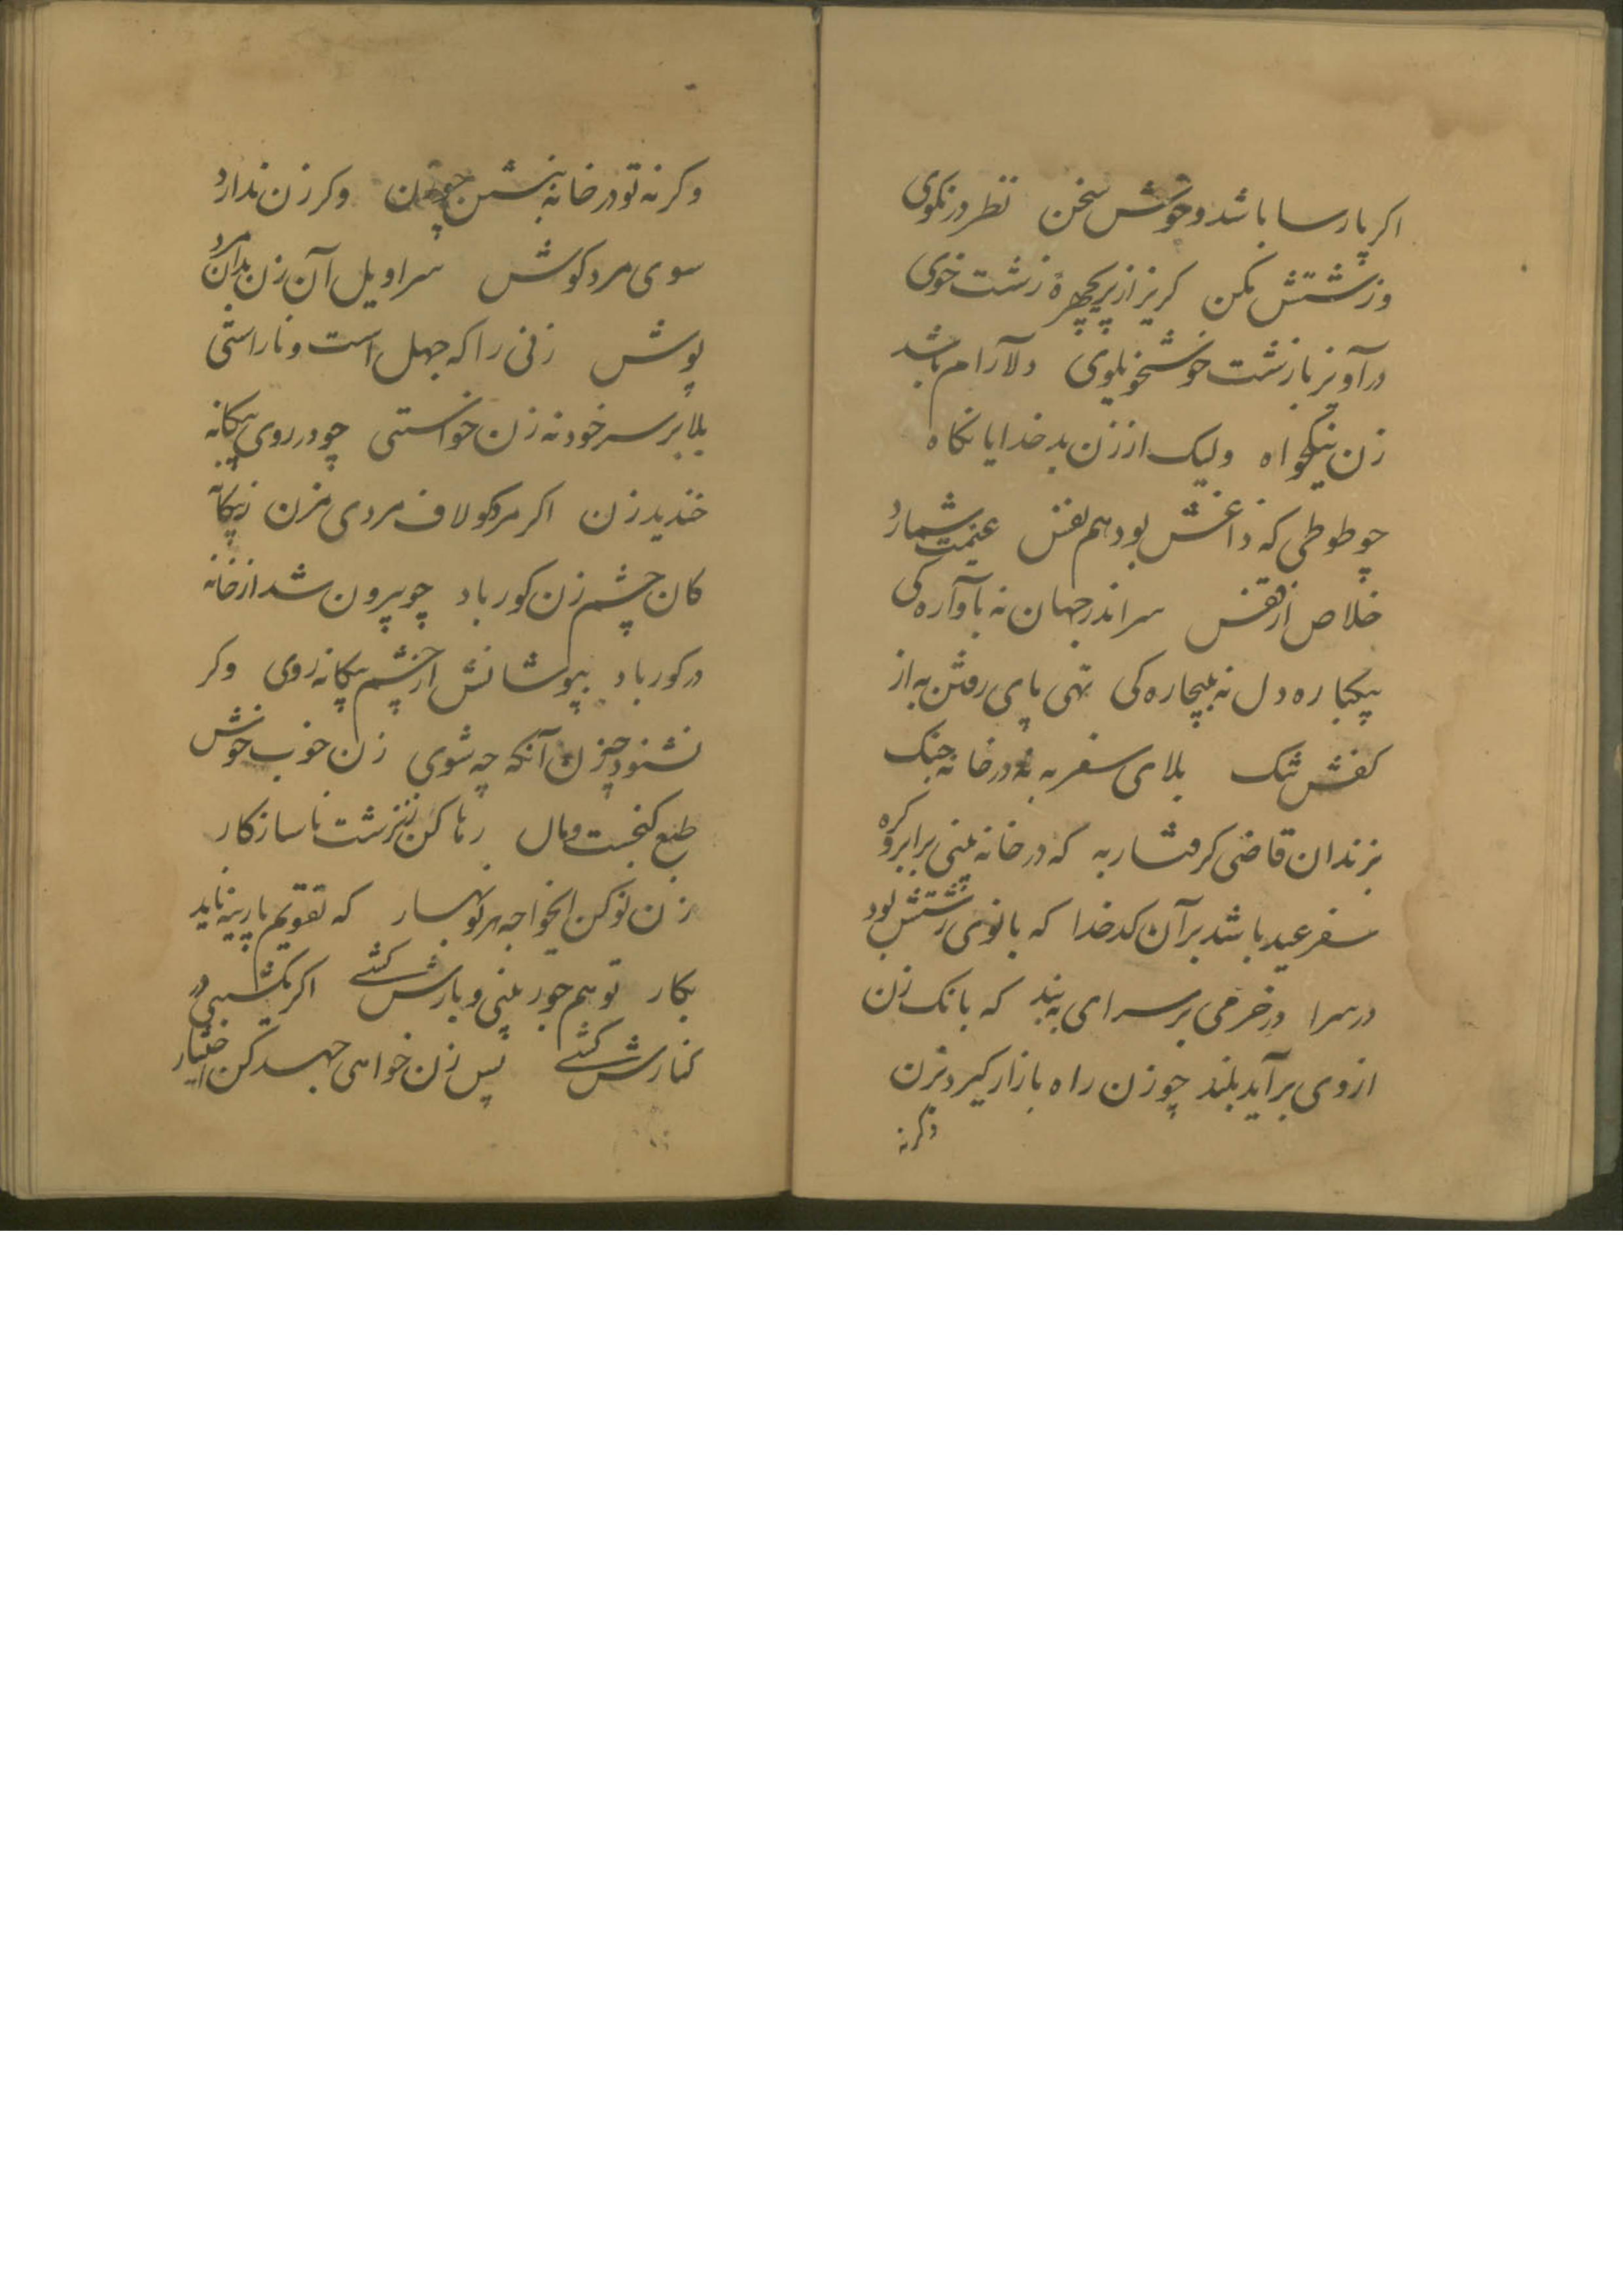 اکر پارسا باشد و خوش سخن نظر در نکوی
و زشتش مکن کریز از پریچهرهٔ زشت خوی
درآویز با زشت خوشخو بلوی دلآرام باشد
زن نیکخواه ولیک از زن بد خدایا نکاه
چو طوطی که زاغش بود هم نفس غنیمت شمارد
خلاص از قفس سر اندر جهان نه بآواره کی
به یکباره دل نه بیچاره کی تهی پای رفتن به از
کفش تنک بلای سفر به نه در خانه جنک
بزندان قاضی کرفتار به که در خانه بینی برابرو کره
سفر عید باشد بر آن کدخدا که بانوی زشتش بود
در سرا در خرمی بر سرای به بند که بانک زن
از وی برآید بلند چو زن راه بازار کیرد بزن
وکرنه
وکرنه تو در خانه بنشین چو زن وکر زن ندارد
سوی مرد کوش سراویل آن زن بدان مرد
پوش زنی را که جهل است و ناراستی
بلا بر سر خود نه زن خواستی چو در روی بیکانه
خندید زن اکر مرد کو لاف مردی مزن ز بیکانه
کان چشم زن کور باد چو بیرون شد از خانه
در کور باد بپوشانش از چشم بیکانه روی وکر
نشنود چه زن آنکه چه شوی زن خوب خوش
طبع کنجست و مال رها کن زن زشت ناسازکار
زن نو کن ایخواجه هر نوبهار که تقویم پارینه ناید
بکار تو هم جور بینی و بارش کشی اکر یکشبی در
کنارش کشی پس زن خواهی جهد کن اختیار